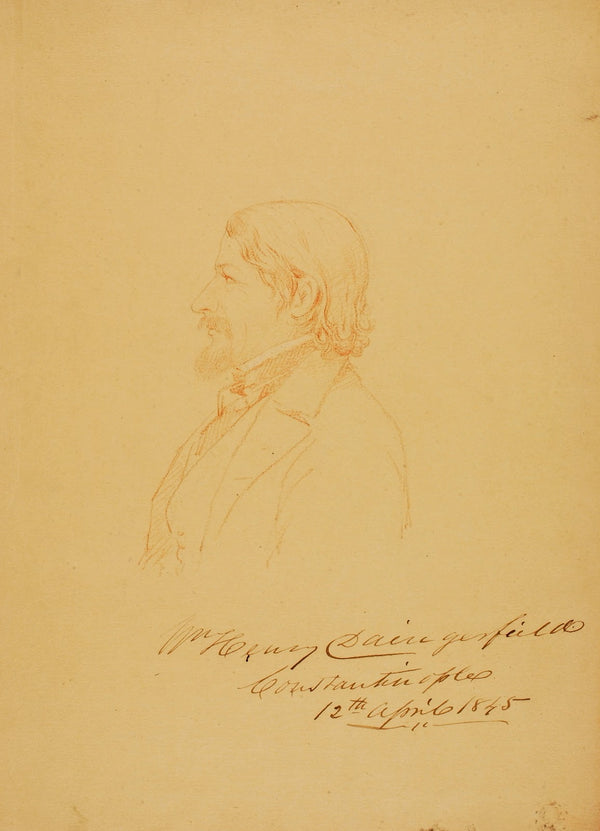 Wm Henry Daingerfield
Constantinople
12th April 1845